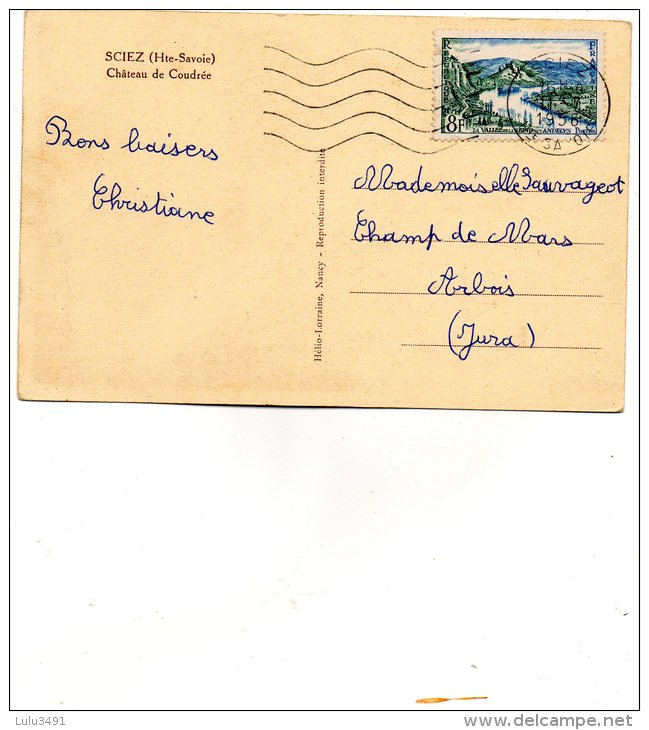 SCIEZ (Hte-Savoie)
Château de Coudrée
Bons baisers
Christiane
Hélio-Lorraine, Nancy - Reproduction interdite
REPUBLIQUE
FRANCAISE
8F
LA VALLÉE DE LA SEINE AUX ANDELYS
Postes
SCIEZ
1956
Mademoiselle Sauvageot
Champ de Mars
Arbois
(Jura)
Lulu3491
delcampe.net